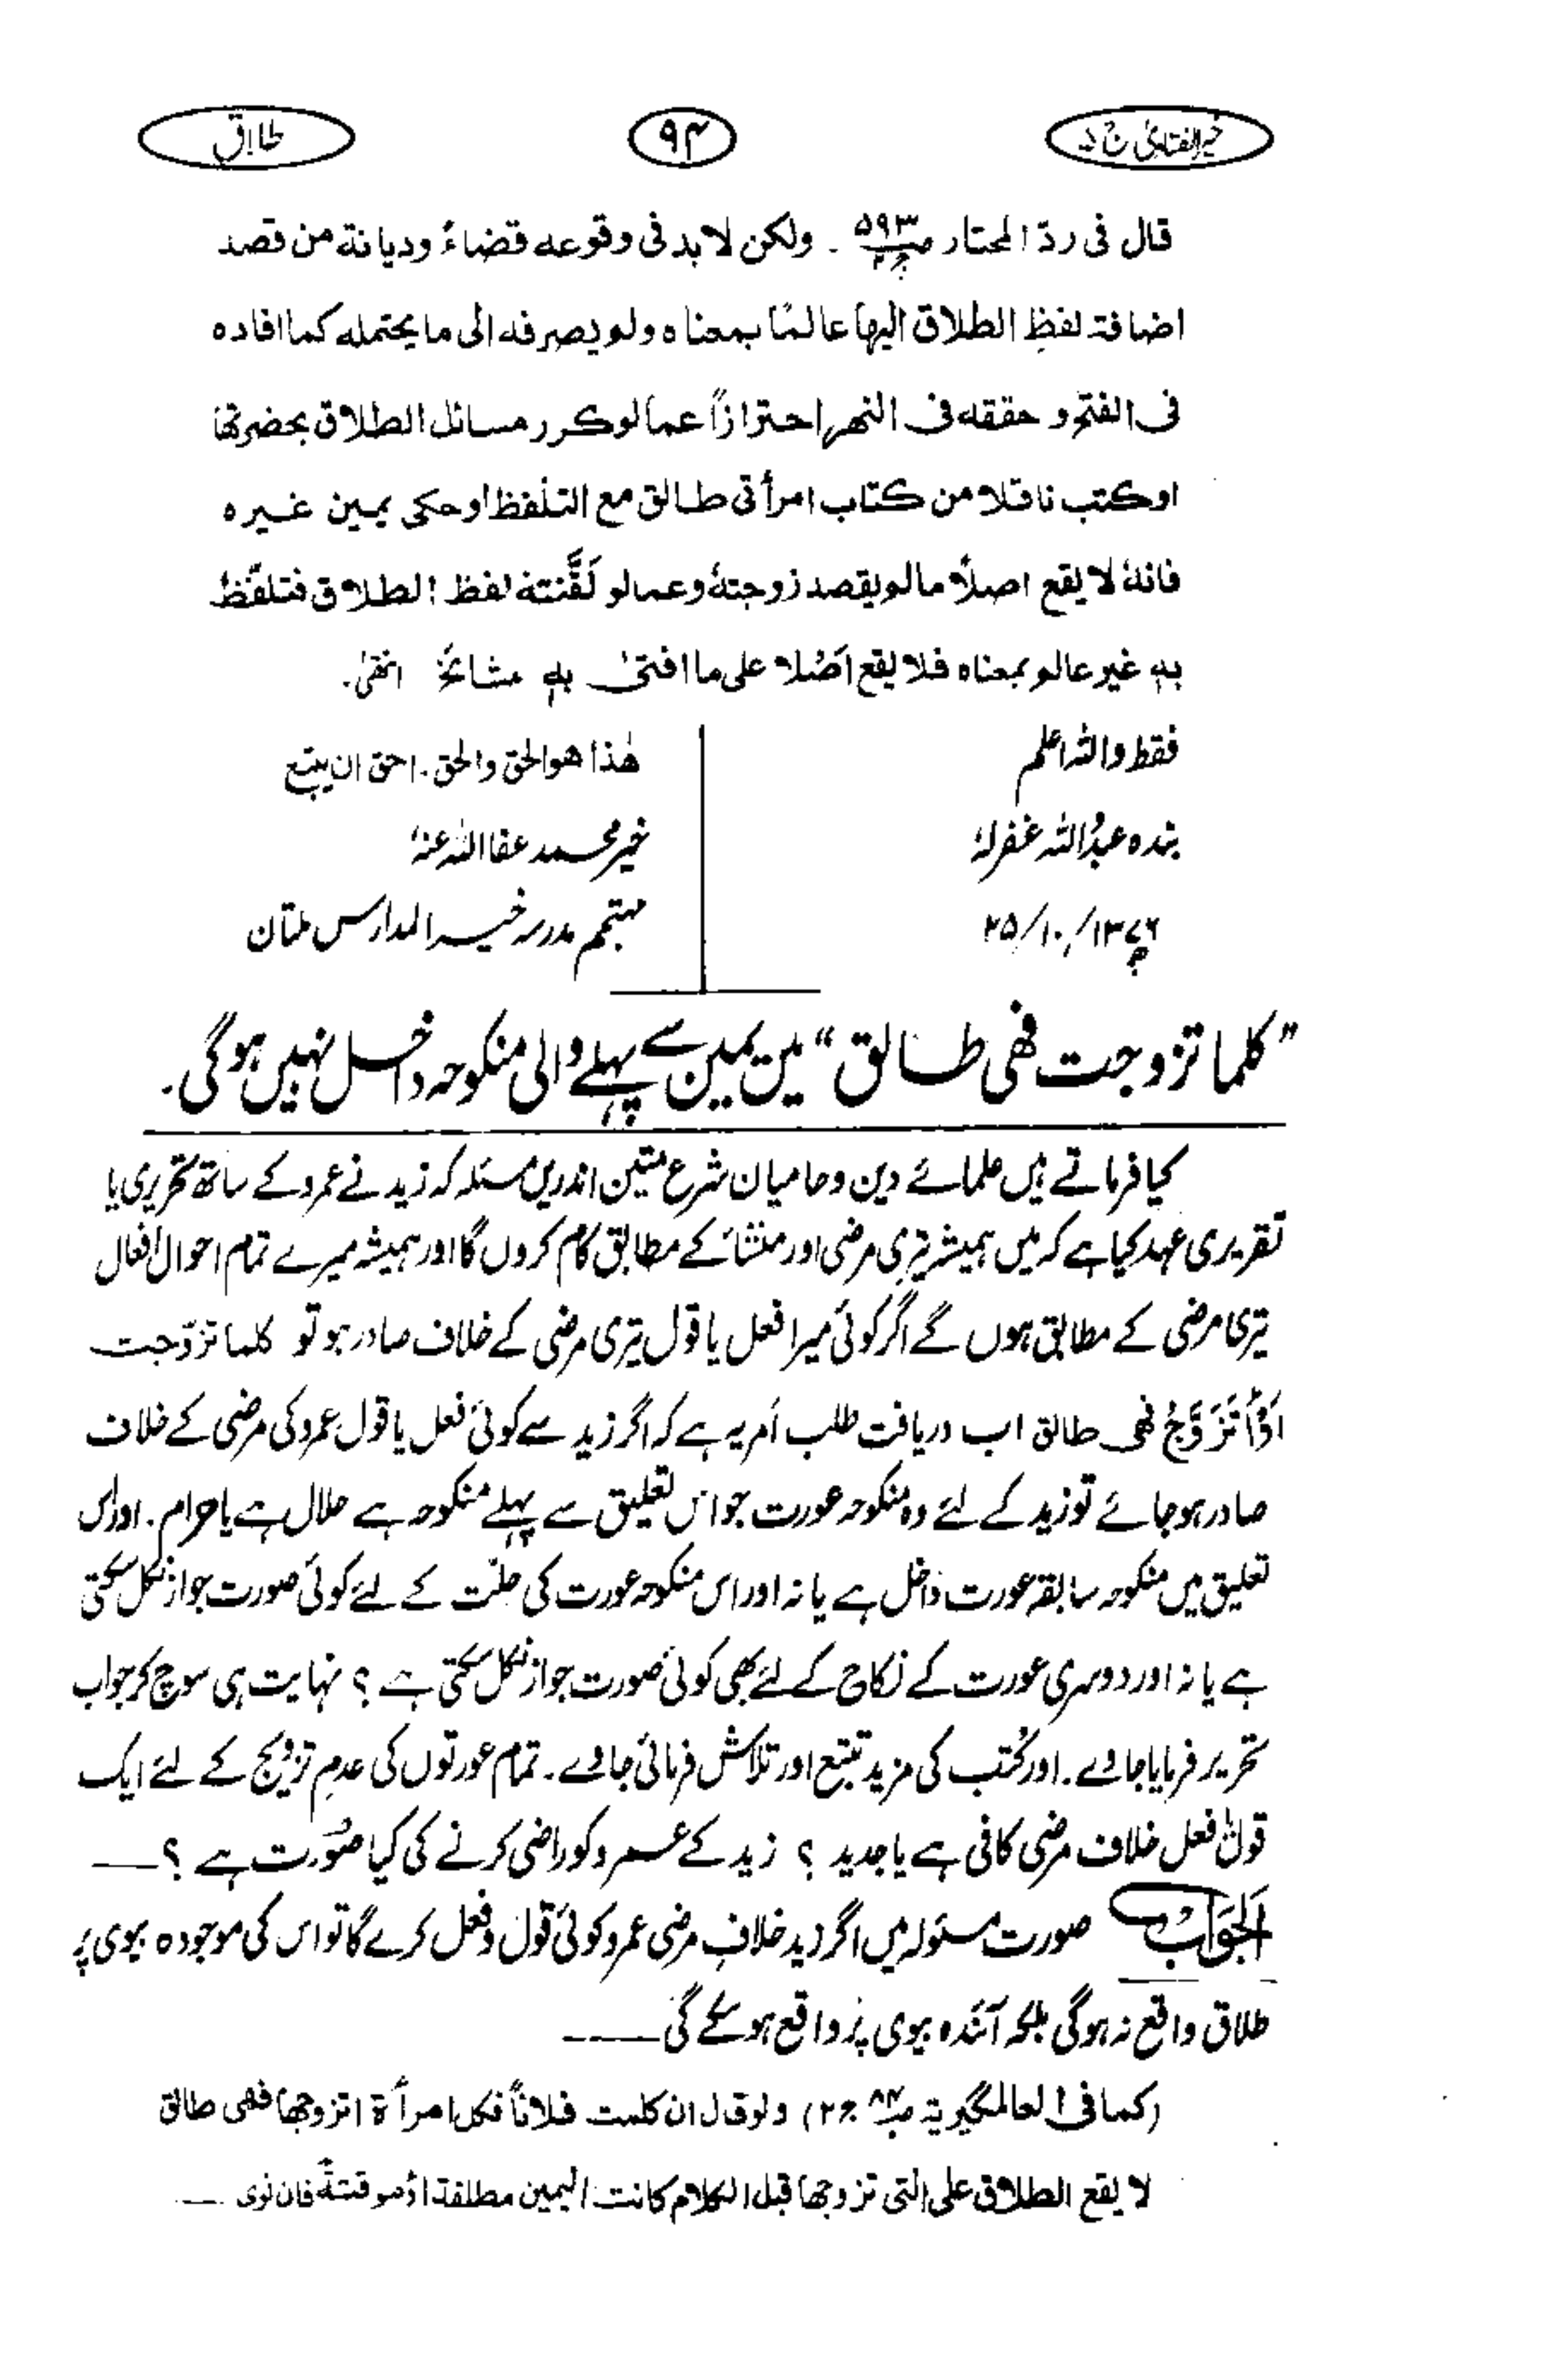 خیر الفتاویٰ ج ۵
۹۴
طلاق
قال فی ردّ المحتار ص۵۹۳ ج۲ ۔ ولکن لابد فی وقوعه قضاءً ودیانة من قصد
اضافة لفظِ الطلاق الیها عالمًا بمعناہ ولم یصرفه الی ما یحتمله کما افادہ
فی الفتح و حققه فی النهر احترازاً عما لو کرر مسائل الطلاق بحضرتها
او کتب ناقلا من کتاب امرأتی طالق مع التلفظ او حکی یمین غیرہ
فانهٗ لا یقع اصلاً مالم یقصد زوجتهٗ وعمالو لَقَّنتهٗ لفظ الطلاق فتلفّظ
بهٖ غیر عالم بمعناہ فلا یقع اَصْلا علی ما افتیٰ بهٖ مشائخ انتھیٰ۔
فقط واللہ اعلم
بندہ عبدُاللہ غفرلہٗ
۲۵/۱۰/۱۳۷۶ھ
ھٰذا ھو الحق والحق احق ان یتبع
خیر محمد عفا اللہ عنہٗ
مہتمم مدرسہ خیر المدارس ملتان
”کلما تزوجت فھی طالق“ میں یمین سے پہلے والی منکوحہ داخل نہیں ہوگی۔
کیا فرماتے ہیں علمائے دین و حامیان شرع متین اندریں مسئلہ کہ زید نے عمرو کے ساتھ تحریری یا
تقریری عہد کیا ہے کہ میں ہمیشہ تیری مرضی اور منشاء کے مطابق کام کروں گا اور ہمیشہ میرے تمام احوال افعال
تیری مرضی کے مطابق ہوں گے اگر کوئی میرا فعل یا قول تیری مرضی کے خلاف صادر ہو تو کلما تزوّجت
اَوْ اَتَزَوَّجُ فھی طالق اب دریافت طلب اَمر یہ ہے کہ اگر زید سے کوئی فعل یا قول عمرو کی مرضی کے خلاف
صادر ہو جائے تو زید کے لئے وہ منکوحہ عورت جو اس تعلیق سے پہلے منکوحہ ہے حلال ہے یا حرام۔ اور اس
تعلیق میں منکوحہ سابقہ عورت داخل ہے یا نہ اور اس منکوحہ عورت کی حلّت کے لئے کوئی صورت جواز نکل سکتی
ہے یا نہ اور دوسری عورت کے نکاح کے لئے بھی کوئی صورت جواز نکل سکتی ہے ؟ نہایت ہی سوچ کر جواب
تحریر فرمایا جاوے۔ اور کُتب کی مزید تتبع اور تلاش فرمائی جاوے۔ تمام عورتوں کی عدمِ تزویج کے لئے ایک
قول و فعل خلاف مرضی کافی ہے یا جدید ؟ زید کے عمرو کو راضی کرنے کی کیا صُورت ہے ؟
اَلجَوَابُ صورت مسئولہ میں اگر زید خلافِ مرضی عمرو کوئی قول و فعل کرے گا تو اس کی موجودہ بیوی پر
طلاق واقع نہ ہوگی بلکہ آئندہ بیوی پر واقع ہو سکے گی
(کما فی العالمگیریة ص۸۴ ج۲) ولو قال ان کلمت فلاناً فکل امرأة اتزوجها فھی طالق
لا یقع الطلاق علی التی تزوجها قبل الکلام کانت الیمین مطلقة اَو موقتةً فان نوی